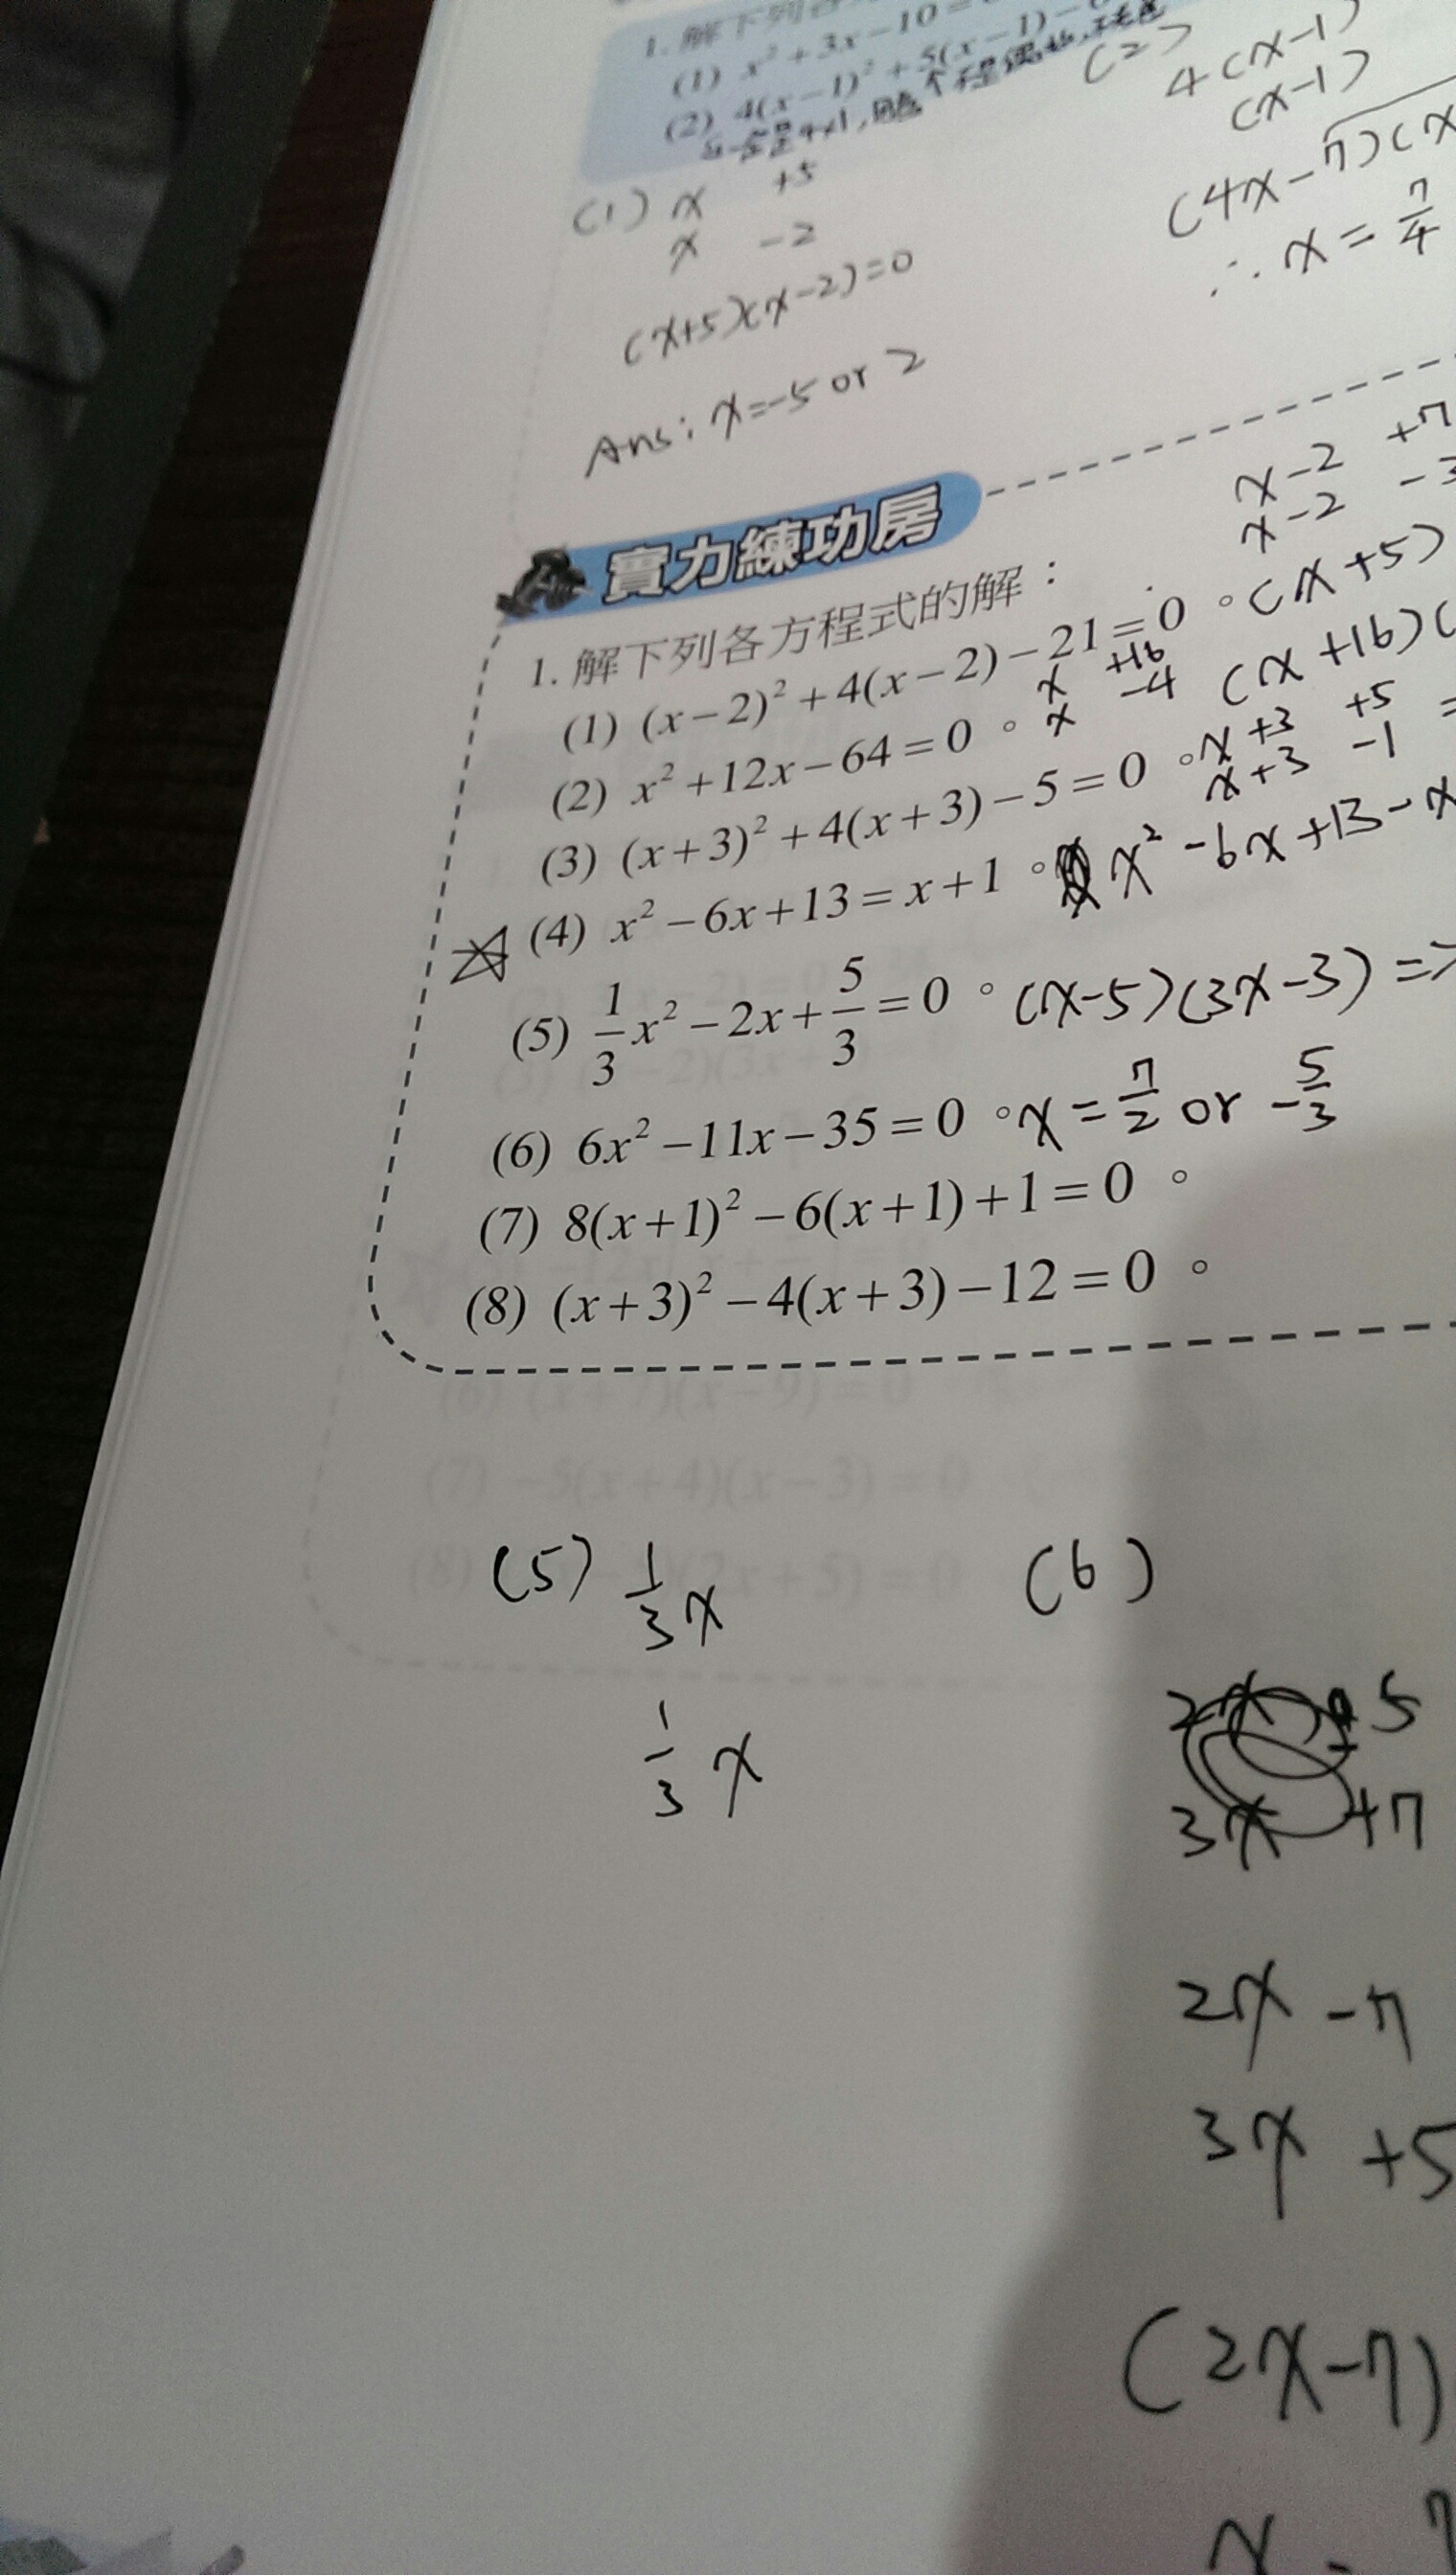 1. 解下列各
(1) x² + 3x − 10 =
(2) 4(x − 1)² + 5(x − 1) −
(1) x +5
x −2
(x+5)(x−2)=0
Ans: x=−5 or 2
(2)
4(x−1)
(x−1)
(4x−7)(x
∴ x = 7/4
實力練功房
x−2 +7
x−2 −3
1. 解下列各方程式的解：
(1) (x−2)² + 4(x−2) − 21 = 0 。(x+5)
(2) x² + 12x − 64 = 0 。 x +16 (x+16)(
x −4
(3) (x+3)² + 4(x+3) − 5 = 0 。x+3 +5
x+3 −1 =
☆ (4) x² − 6x + 13 = x + 1 。 x² − 6x + 13 − x
(5) 1/3 x² − 2x + 5/3 = 0 。 (x−5)(3x−3) =>
(6) 6x² − 11x − 35 = 0 。x = 7/2 or −5/3
(7) 8(x+1)² − 6(x+1) + 1 = 0 。
(8) (x+3)² − 4(x+3) − 12 = 0 。
(6) (x+7)(x−9) = 0
(7) −5(x+4)(x−3) = 0
(5) 1/3 x
1/3 x
(6)
2x 5
3x +7
2x −7
3x +5
(2x−7)
x